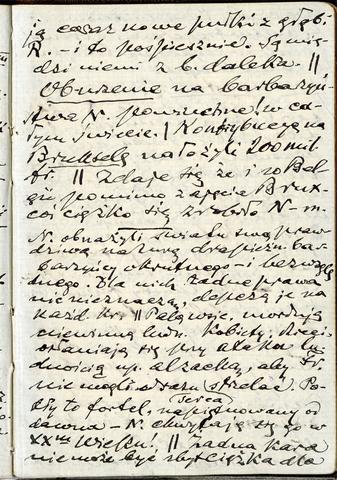 ją coraz nowe pułki z głębi
R. – i to pośpiesznie. Są mię-
dzi niemi z b. daleka. ||
Oburzenie na barbarzyń-
stwa N. powszechne w ca-
łym świecie. | Kontrybucyę na
Brukselę nałożyli 200 mil
fr. || Zdaje się że i w Bel-
gii pomimo zajęcia Brux-
coś ciężko się zrobiło N-m.
N. obnażyli światu swą praw-
dziwą naturę drapieżn. bar-
barzyńcy okrutnego – i bezwzglę
dnego. Dla nich żadne prawa
nie nieznaczą, depczą je na
każd. kr. || Palą wsie, mordują
niewinną ludn. Kobiety, dzieci
osłaniają się przy ataku lu-
dnością np. alzacką, aby Fr.
nie mogli zaraz strzelać. Po-
dły to fortel, napiętnowany od
dawna – N. chwytają się go w
XXtym wieku! || Żadna kara
nie może być zbyt ciężka dla